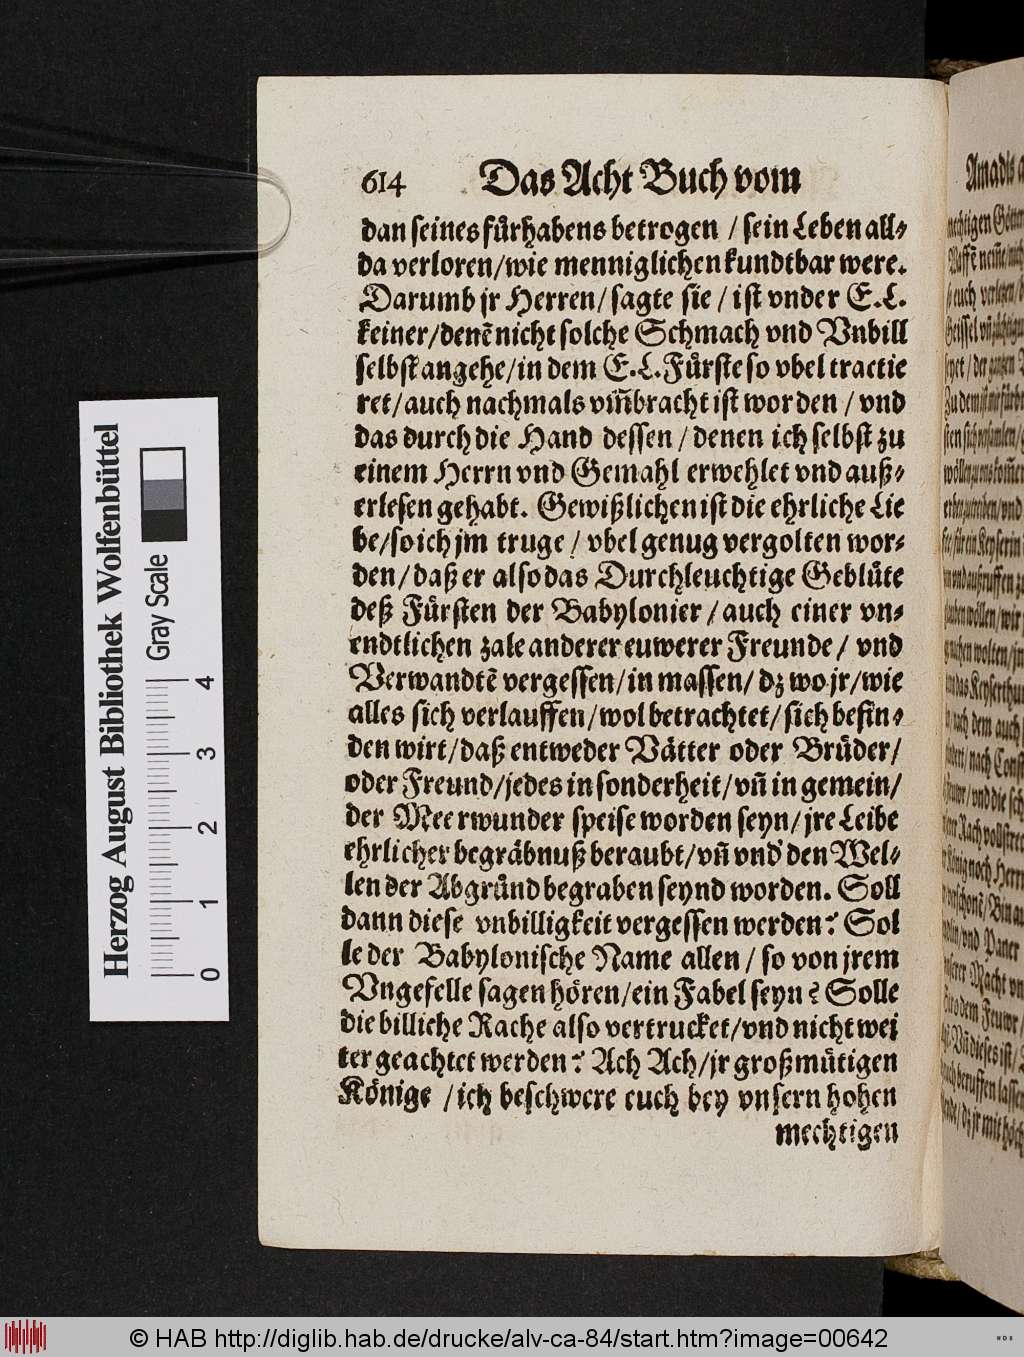 614 Das Acht Buch vom
dan seines fürhabens betrogen / sein Leben all-
da verloren/wie menniglichen kundtbar were.
Darumb jr Herren/ sagte sie / ist vnder E.L.
keiner/denē nicht solche Schmach vnd Vnbill
selbst angehe/in dem E.L.Fürste so vbel tractie
ret/auch nachmals vm̃bracht ist worden / vnd
das durch die Hand dessen / denen ich selbst zu
einem Herrn vnd Gemahl erwehlet vnd auß-
erlesen gehabt. Gewißlichen ist die ehrliche Lie
be/so ich jm truge / vbel genug vergolten wor-
den/daß er also das Durchleuchtige Geblüte
deß Fürsten der Babylonier / auch einer vn-
endtlichen zale anderer euwerer Freunde / vnd
Verwandtē vergessen/in massen/ dz wo jr/wie
alles sich verlauffen/wol betrachtet/sich befin-
den wirt/daß entweder Vätter oder Brüder/
oder Freund/jedes in sonderheit/vñ in gemein/
der Meerwunder speise worden seyn/jre Leibe
ehrlicher begräbnuß beraubt/vñ vnd' den Wel-
len der Abgründ begraben seynd worden. Soll
dann diese vnbilligkeit vergessen werden? Sol
le der Babylonische Name allen / so von jrem
Vngefelle sagen hören/ein Fabel seyn? Solle
die billiche Rache also vertrucket/vnd nicht wei
ter geachtet werden? Ach Ach/jr großmütigen
Könige / ich beschwere euch bey vnsern hohen
mechtigen
Amadis
Herzog August Bibliothek Wolfenbüttel
Gray Scale
0 1 2 3 4
© HAB http://diglib.hab.de/drucke/alv-ca-84/start.htm?image=00642